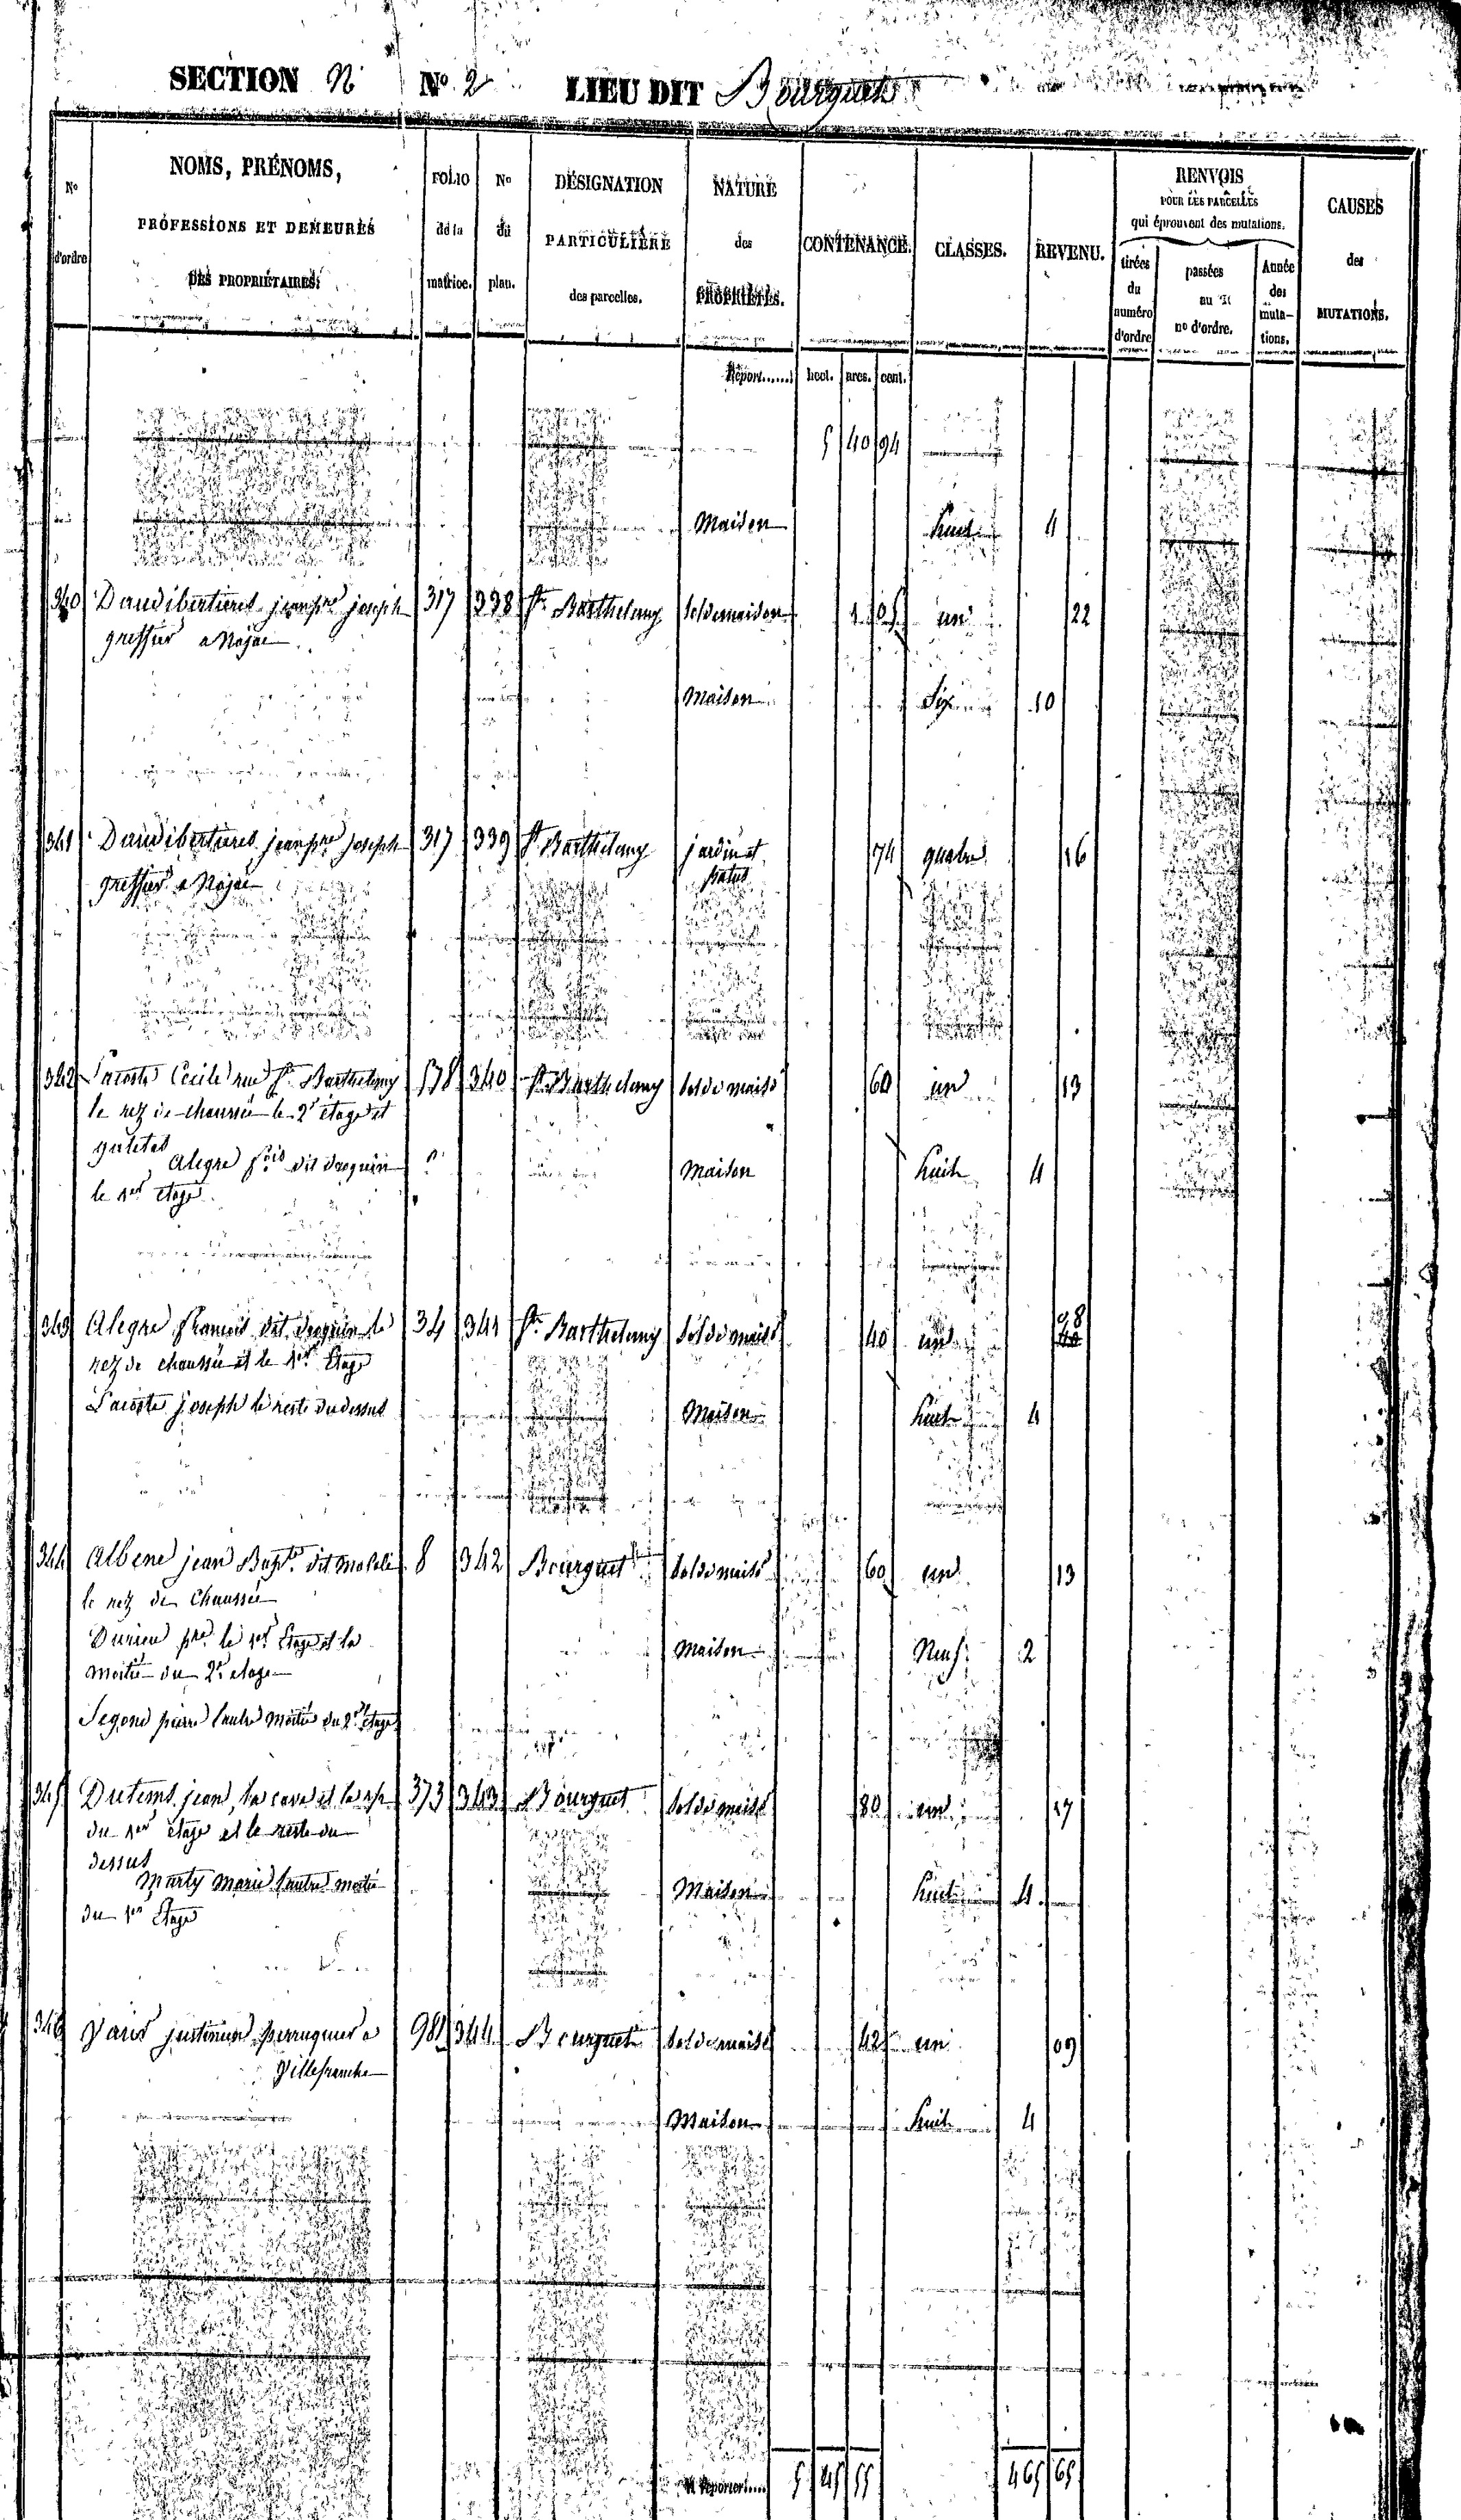 SECTION N No 2 LIEU DIT Bourguet
No d'ordre
NOMS, PRÉNOMS,
PROFESSIONS ET DEMEURES
DES PROPRIÉTAIRES.
FOLIO de la matrice.
No du plan.
DÉSIGNATION PARTICULIÈRE des parcelles.
NATURE des PROPRIÉTÉS.
CONTENANCE.
CLASSES.
REVENU.
RENVOIS
POUR LES PARCELLES
qui éprouvent des mutations.
tirées du numéro d'ordre
passées au no d'ordre.
Année des muta-tions.
CAUSES des MUTATIONS.
Report...... hect. ares. cent.
5 40 94
Maison huit 4
340 Daudibertieres jean pre joseph 317 338 St. Barthelemy sol de maison 1 05 un 22
greffier a Najac
Maison Six 10
341 Daudibertieres jean pre joseph 317 339 St Barthelemy jardin et 74 quatre 16
greffier a Najac patus
342 Lacoste Cecile rue St. Barthelemy 578 340 St. Barthelemy sol de maison 60 un 13
le rez de chaussée le 2e étage et
galetas
Alegre fois dit Jaoquin Maison huit 4
le 1er étage
343 Alegre francois dit Jaoquin le 34 341 St. Barthelemy sol de maison 40 un 08
rez de chaussée et le 1er étage
Lacoste joseph le reste du dessus Maison huit 4
344 Albene jean Bapte. dit 8 342 Bourguet sol de maison 60 un 13
le rez de chaussée
Durieu pre le 1er étage et la Maison Neuf 2
moitié du 2e étage
Segond pierre l'autre moitié du 2e étage
345 Dutems jean, la cave et la 373 343 Bourguet sol de maison 80 un 17
du 1er étage et le reste du
dessus
Marty Marie l'autre moitié Maison huit 4
du 1er étage
346 justinien perruquier a 981 344 Bourguet sol de maison 42 un 09
Villefranche
Maison huit 4
A Reporter.... 5 45 55 465 65